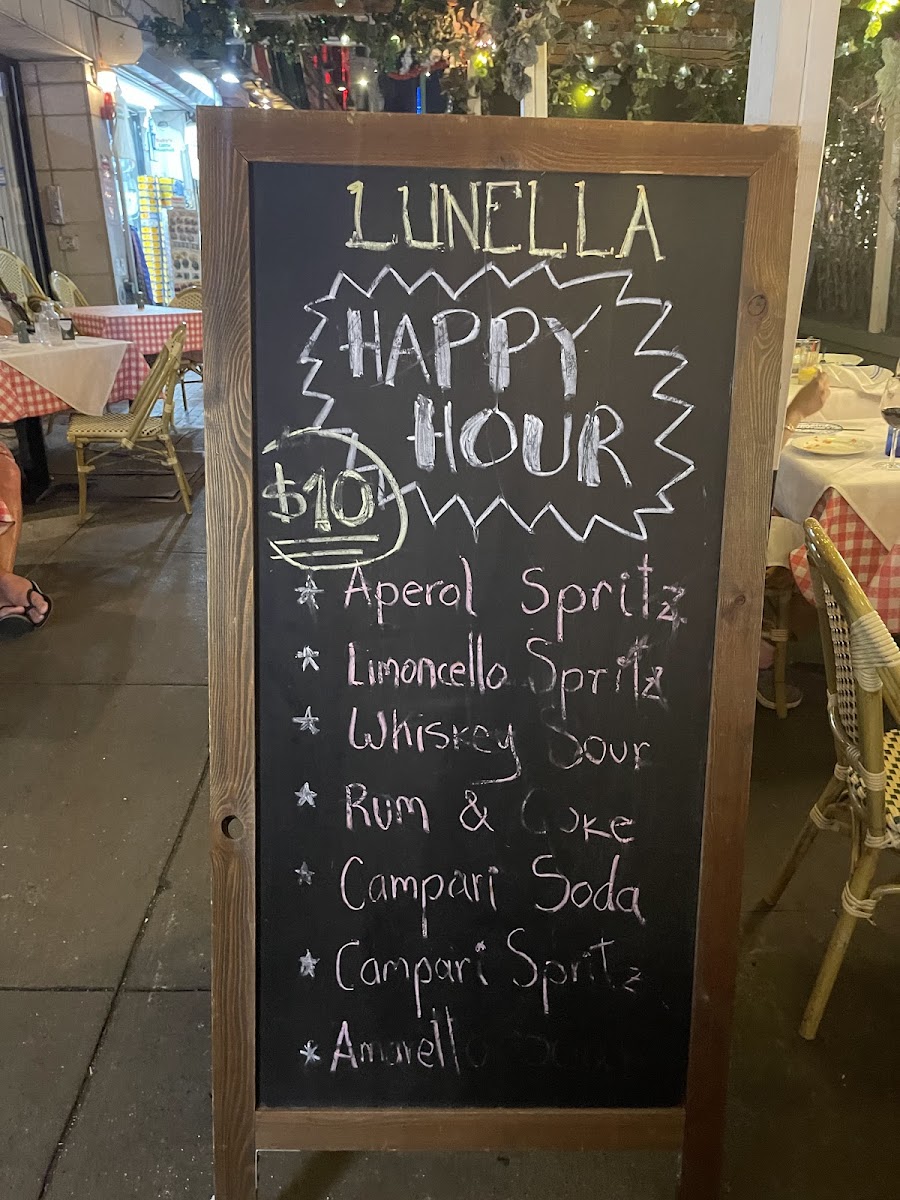 LUNELLA
HAPPY
HOUR
$10
Aperol Spritz
Limoncello Spritz
Whiskey Sour
Rum & Coke
Campari Soda
Campari Spritz
Amarello